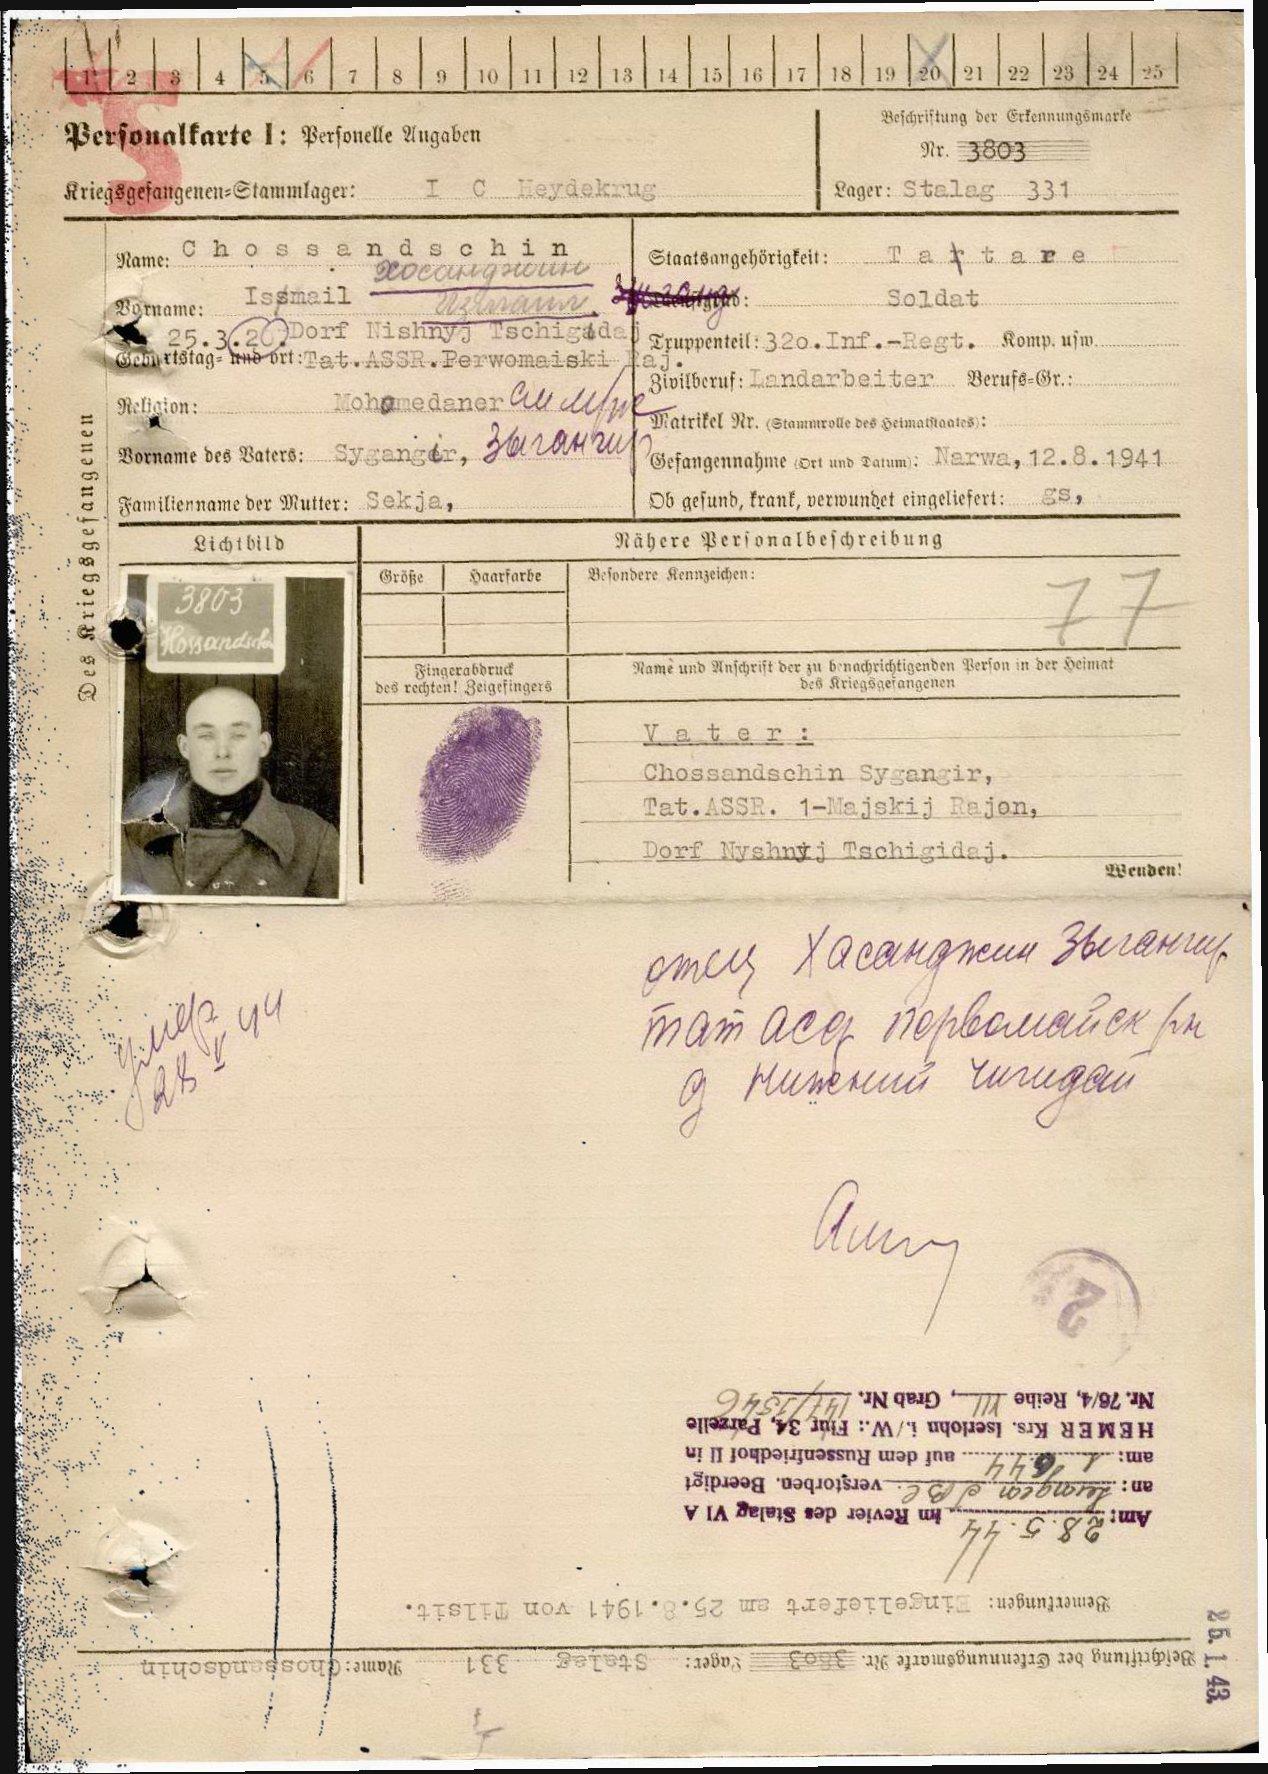 1 2 3 4 5 6 7 8 9 10 11 12 13 14 15 16 17 18 19 20 21 22 23 24 25
S
Personalkarte I: Personelle Angaben
Kriegsgefangenen-Stammlager: I C Heydekrug
Beschriftung der Erkennungsmarke
Nr. 3803
Lager: Stalag 331
Des Kriegsgefangenen
Name: Chossandschin
Хосанджин
Vorname: Ismail
Измаил
25.3.20. Dorf Nishnyj Tschigidaj
Geburtstag- und ort: Tat.ASSR.Perwomaiski Raj.
Religion: Mohamedaner
Vorname des Vaters: Sygangir, Зыгангир
Familienname der Mutter: Sekja,
Staatsangehörigkeit: Tatare
Dienstgrad: Soldat
Truppenteil: 320.Inf.-Regt. Komp. usw.
Zivilberuf: Landarbeiter Berufs-Gr.:
Matrikel Nr. (Stammrolle des Heimatstaates):
Gefangennahme (Ort und Datum): Narwa, 12.8.1941
Ob gesund, krank, verwundet eingeliefert: gs,
Lichtbild
Nähere Personalbeschreibung
Größe Haarfarbe Besondere Kennzeichen:
77
3803
Hossandschin
Fingerabdruck
des rechten! Zeigefingers
Name und Anschrift der zu benachrichtigenden Person in der Heimat
des Kriegsgefangenen
Vater:
Chossandschin Sygangir,
Tat.ASSR. 1-Majskij Rajon,
Dorf Nyshnij Tschigidaj.
Wenden!
отец Хасанджин Зыгангир
тат асср первомайск рн
д Нижний Чигидай
умер
28 V 44
2
Nr. 76/4, Reihe VII, Grab Nr. 147/1546
HEMER Krs. Iserlohn i./W.: Flur 34, Parzelle
am: 1 6 44 auf dem Russenfriedhof II in
an: verstorben. Beerdigt
Am: 28.5.44 im Revier des Stalag VI A
Bemerkungen: Eingeliefert am 25.8.1941 von Tilsit.
Beschriftung der Erkennungsmarke Nr. 3803 Lager: Stalag 331 Name: Chossandschin
25.1.43.